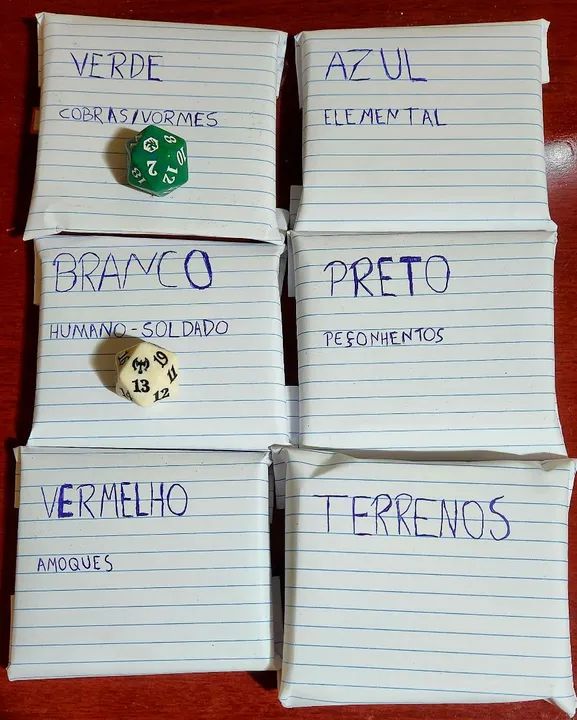 VERDE
COBRAS/VORMES
8
10
2
12
13
AZUL
ELEMENTAL
BRANCO
HUMANO-SOLDADO
19
13
11
12
PRETO
PEÇONHENTOS
VERMELHO
AMOQUES
TERRENOS